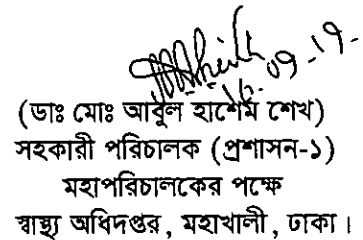 16.09.19.
(ডাঃ মোঃ আবুল হাশেম শেখ)
সহকারী পরিচালক (প্রশাসন-১)
মহাপরিচালকের পক্ষে
স্বাস্থ্য অধিদপ্তর, মহাখালী, ঢাকা।